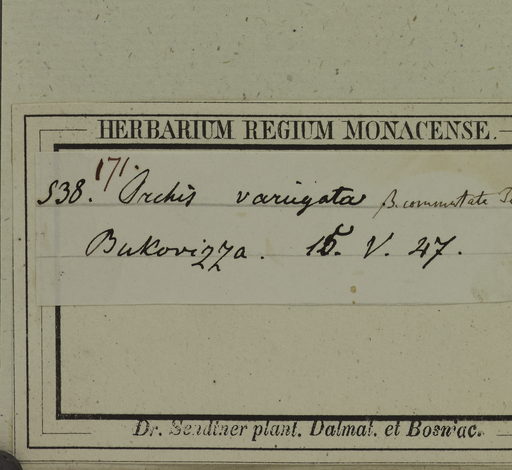 HERBARIUM REGIUM MONACENSE.
171.
538. Orchis variegata β. commutata
Bukovizza. 15. V. 47.
Dr. Sendtner plant. Dalmat. et Bosniac.